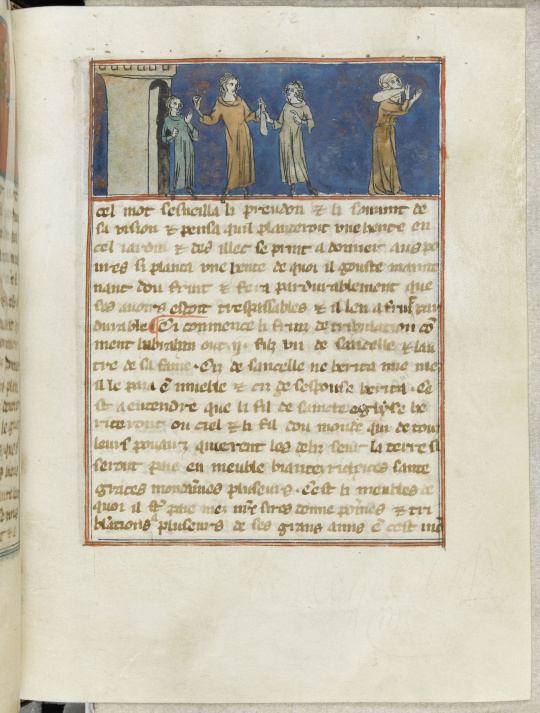 cel mot sesueilla li preudon & li souuint de
sa uision & pensa quil planteroit vne hente en
cel iardin & des illec se prinst a donner aus po
ures si planta vne hente de quoi il gouste mainte
nant dou fruit & fera pardurablement que
ses auoirs estoit trespassables & il len a fruit par
durable Ci commence li fruiz de tribulation cō
ment habrahan out .ij. filz lun de sancelle & lau
tre de sa fame . Cilz de sancelle ne herita mie mez
il le paia ē mueble & cil de sespouse herita . Ce
st a entendre que li fil de saincte eglyse he
riteront ou ciel & li fil dou monde qui de tout
leurs pouair quierent los deliz seur la terre si
seront paie en meuble biauter richeces sante
graces mondaines pluseurs . Cest li meubles de
quoi il sont paie mez nostre sires donne poines & tri
blations pluseurs de ses grans amis